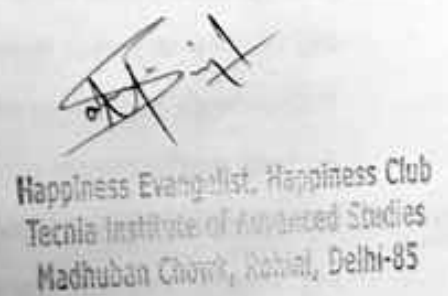 Happiness Evangelist, Happiness Club
Tecnia Institute of Advanced Studies
Madhuban Chowk, Rohini, Delhi-85